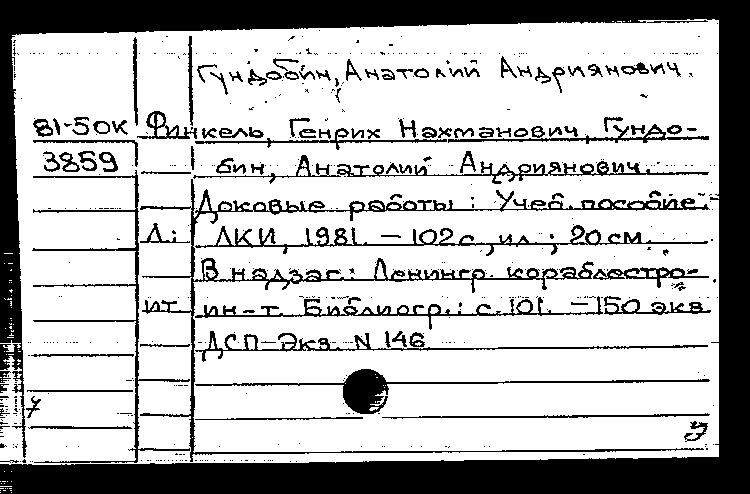 Гундобин, Анатолий Андриянович.
81-50К Финкель, Генрих Нахманович, Гундо-
3859 бин, Анатолий Андриянович.
Доковые работы : Учеб. пособие.-
Л.: ЛКИ, 1981. - 102 с., ил ; 20 см.
В надзаг.: Ленингр. кораблестро-
ит ин-т. Библиогр.: с. 101. - 150 экз
ДСП Экз. N 146